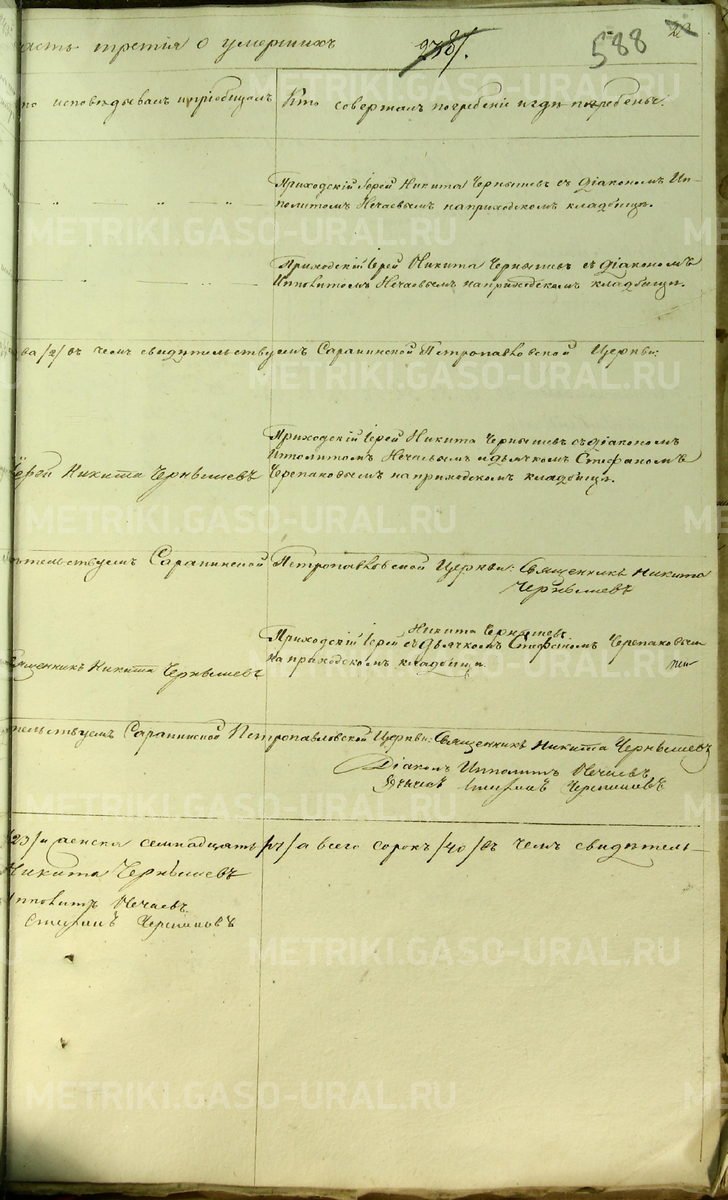 асть третiя о умершихъ
588
то исповѣдывалъ и прiобщалъ
Кто совершалъ погребенiе и гдѣ погребены.
Приходскiй Iерей Никита Чернышевъ съ дiакономъ Ип-
политомъ Нечаевымъ на приходскомъ кладбищѣ.
Приходскiй Iерей Никита Чернышевъ съ дiакономъ
Ипполитомъ Нечаевымъ на приходскомъ кладбищѣ.
два /2/ въ чемъ свидѣтельствуемъ Саранинской Петропавловской Церкви:
Приходскiй Iерей Никита Чернышевъ съ дiакономъ
Ипполитомъ Нечаевымъ и дьячкомъ Стефаномъ
Черепановымъ на приходскомъ кладбищѣ.
Iерей Никита Чернышевъ
тельствуемъ Саранинской Петропавловской Церкви: Священникъ Никита
Чернышевъ
Никита Чернышевъ
Приходскiй Iерей съ дьячкомъ Стефаномъ Черепановым
на приходскомъ кладбищѣ.
Священникъ Никита Чернышевъ
тельствуемъ Саранинской Петропавловской Церкви: Священникъ Никита Чернышевъ
Дiаконъ Ипполитъ Нечаевъ
Дьячекъ Стефанъ Черепановъ
/23/ и женска семнадцать /17/ а всего сорокъ /40/ въ чемъ свидѣтель-
Никита Чернышевъ
Ипполитъ Нечаевъ
Стефанъ Черепановъ
METRIKI.GASO-URAL.RU